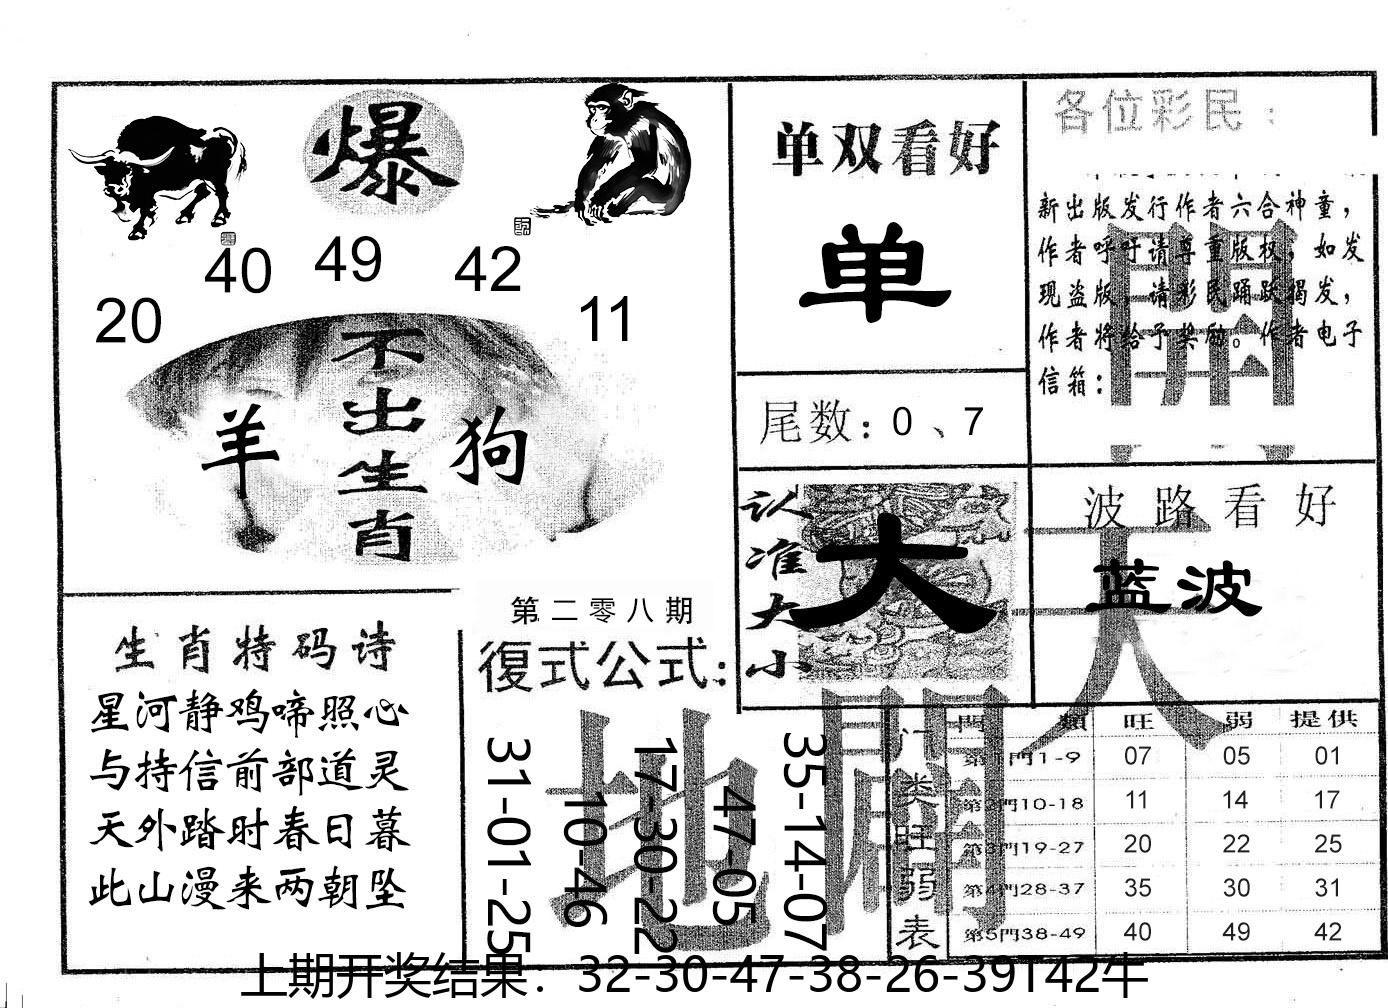 爆
40 49 42
20 11
不出生肖
羊 狗
单双看好
单
尾数：0、7
认准大小
大
各位彩民：
新出版发行作者六合神童，
作者呼吁请尊重版权，如发
现盗版，请彩民踊跃揭发，
作者将给予奖励。作者电子
信箱：
開
波路看好
蓝波
天
生肖特码诗
星河静鸡啼照心
与持信前部道灵
天外踏时春日暮
此山漫来两朝坠
第二零八期
復式公式：
31-01-25
10-46
17-30-22
47-05
35-14-07
地
開
门类旺弱表
門類 旺 弱 提供
第1門1-9 07 05 01
第2門10-18 11 14 17
第3門19-27 20 22 25
第4門28-37 35 30 31
第5門38-49 40 49 42
上期开奖结果：32-30-47-38-26-39T42牛